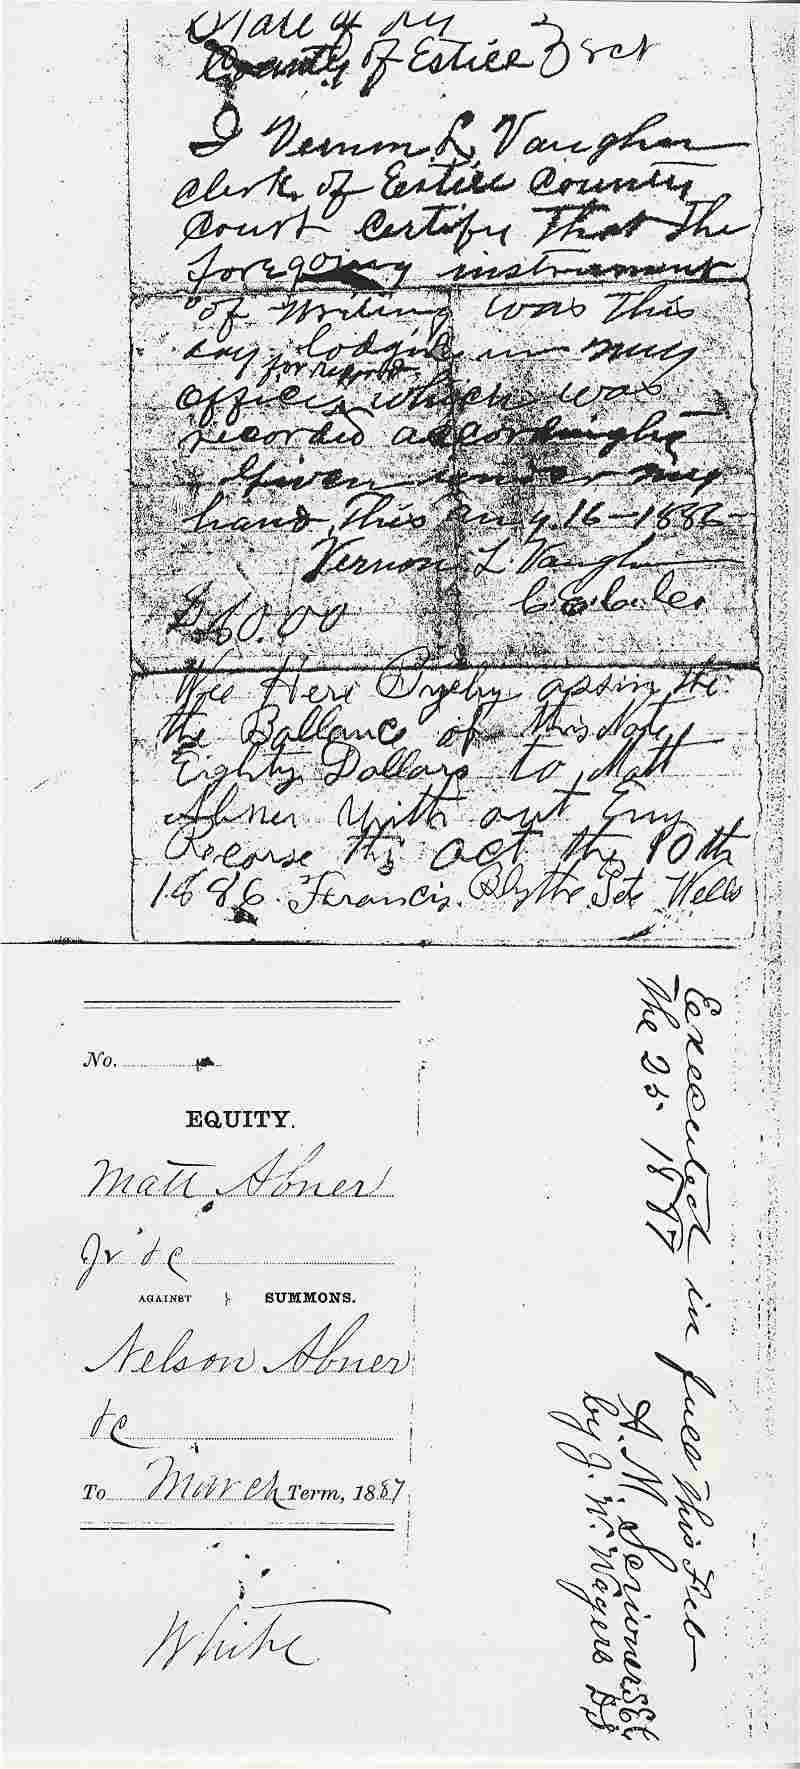 State of Ky
County of Estill } Sct
I Vernon L. Vaughn
clerk of Estill County
Court Certify That The
foregoing instrument
of writing was this
day lodged in my
for record
office which was
recorded accordingly
Given under my
hand This Aug. 16-1886-
Vernon L. Vaughn
C.E.C.C.
$60.00
Wee Here By assin the
the Ballance of this Note
Eighty Dollars to Matt
Abner With out Eny
Recorse this oct the 10th
1886. Francis. Blythe Pete Wells
No.
EQUITY.
Matt Abner
Jr &c
AGAINST } SUMMONS.
Nelson Abner
&c
To March Term, 1887
White
Eexecuted in full this Feb
the 25. 1887
A. M. Scrivner S E C
by J. W. Wagers D.S